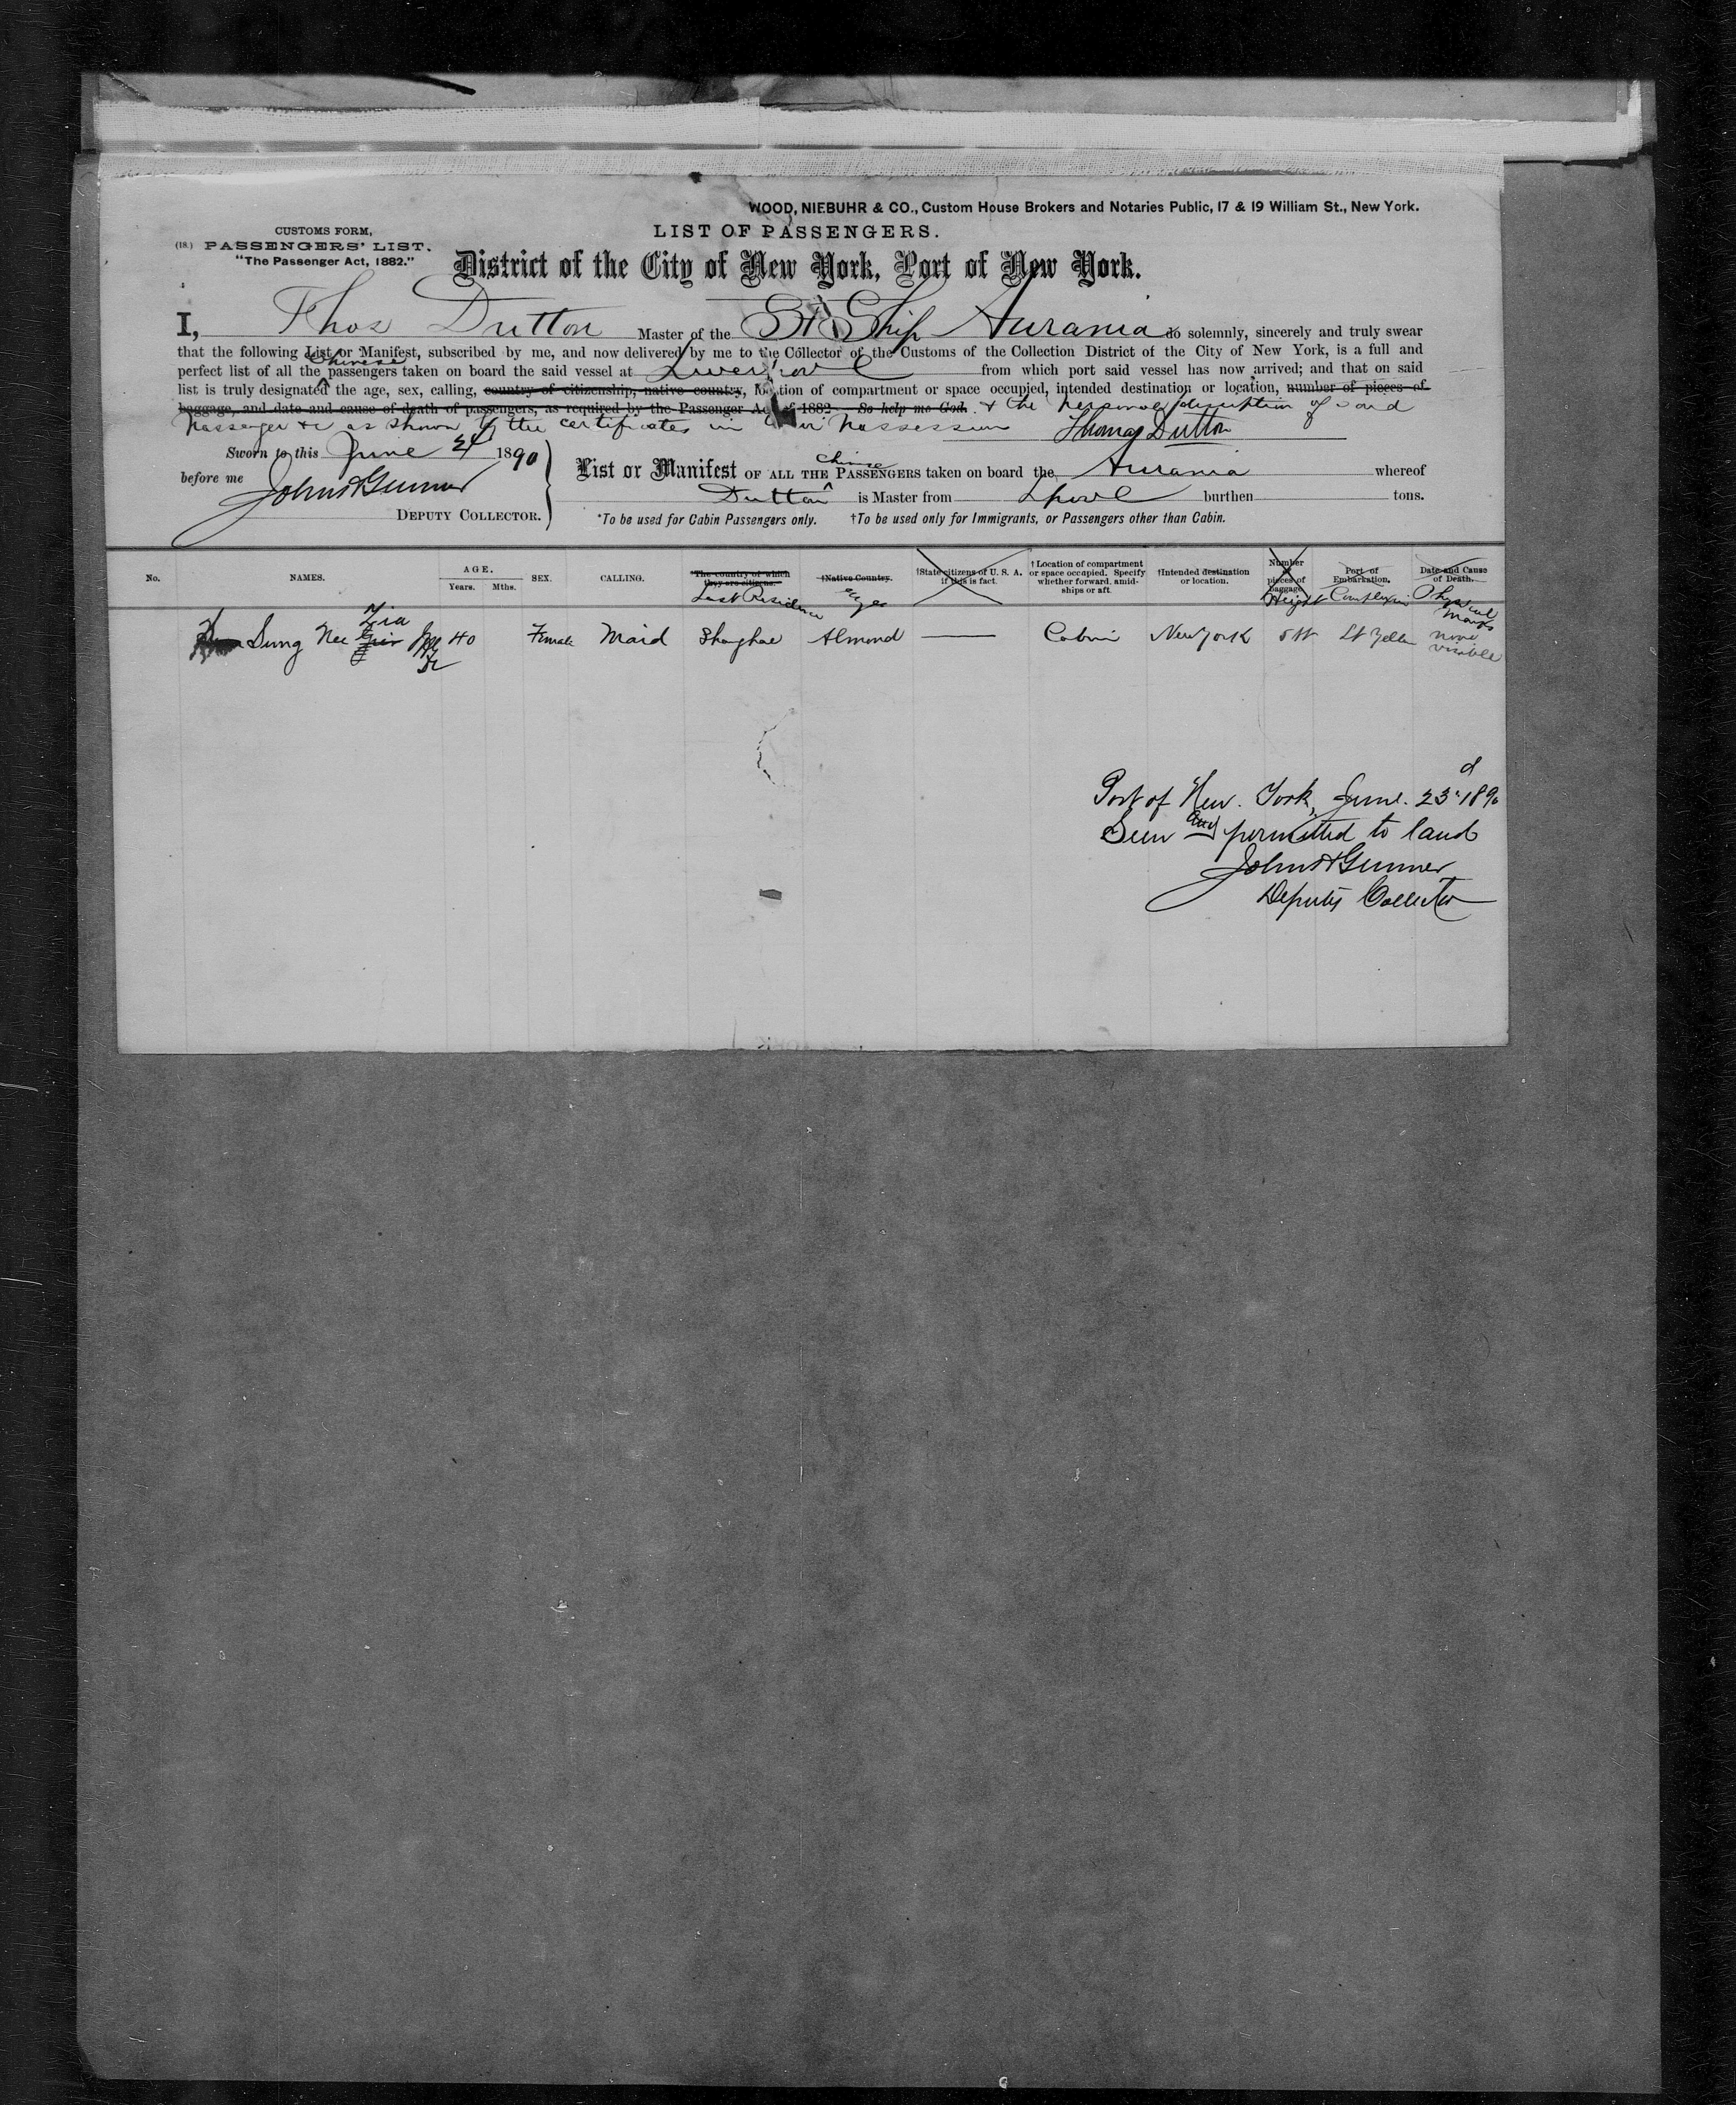 WOOD, NIEBUHR & CO., Custom House Brokers and Notaries Public, 17 & 19 William St., New York.
CUSTOMS FORM,
LIST OF PASSENGERS.
(18.) PASSENGERS' LIST.
"The Passenger Act, 1882."
District of the City of New York, Port of New York.
I, Thos Dutton Master of the St Ship Aurania do solemnly, sincerely and truly swear
that the following List or Manifest, subscribed by me, and now delivered by me to the Collector of the Customs of the Collection District of the City of New York, is a full and
Chinese
perfect list of all the passengers taken on board the said vessel at Liverpool from which port said vessel has now arrived; and that on said
list is truly designated the age, sex, calling, country of citizenship, native country, location of compartment or space occupied, intended destination or location, number of pieces of
baggage, and date and cause of death of passengers, as required by the Passenger Act of 1882. So help me God. & the personal description of said
passenger &c as shown by the certificates in their possession Thomas Dutton
Sworn to this June 24 1890
before me John H Gunner
DEPUTY COLLECTOR.
Chinese
List or Manifest OF ALL THE PASSENGERS taken on board the Aurania whereof
Dutton is Master from Lpool burthen tons.
*To be used for Cabin Passengers only. †To be used only for Immigrants, or Passengers other than Cabin.
No. NAMES. AGE. Years. Mths. SEX. CALLING. The country of which they are citizens. Last Residence †Native Country. Eyes †State citizens of U. S. A. if this is fact. †Location of compartment or space occupied. Specify whether forward, amidships or aft. †Intended destination or location. Number of pieces of baggage Height Port of Embarkation. Complexion Date and Cause of Death. Physical marks
Zia
Sung Nee 40 Female Maid Shanghae Almond Cabin New York 5 ft Lt Yellow none visible
Port of New York, June 23d 1890
Seen and permitted to land
John H Gunner
Deputy Collector